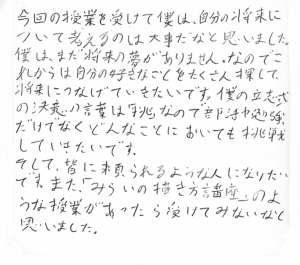 今回の授業を受けて僕は、自分の将来に
ついて考えるのは大事だなと思いました。
僕は、まだ将来の夢がありません。なのでこ
れからは自分の好きなことをたくさん探して、
将来につなげていきたいです。僕の立志式
の決意の言葉は「挑」なので部活や勉強
だけでなくどんなことにおいても挑戦
していきたいです。
そして、皆に頼られるような人になりたい
です。また、「みらいの描き方講座」のよ
うな授業があったら受けてみたいなと
思いました。